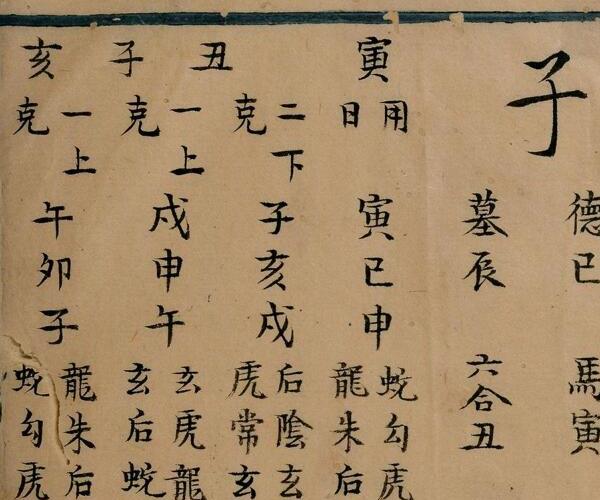 子
德巳 馬寅
墓辰 六合丑
寅
用
日
寅巳申
蛇勾虎
龍朱后
丑
二下
克
子亥戌
后陰玄
虎常玄
子
一上
克
戌申午
玄虎龍
玄后蛇
亥
一上
克
午卯子
龍朱后
蛇勾虎